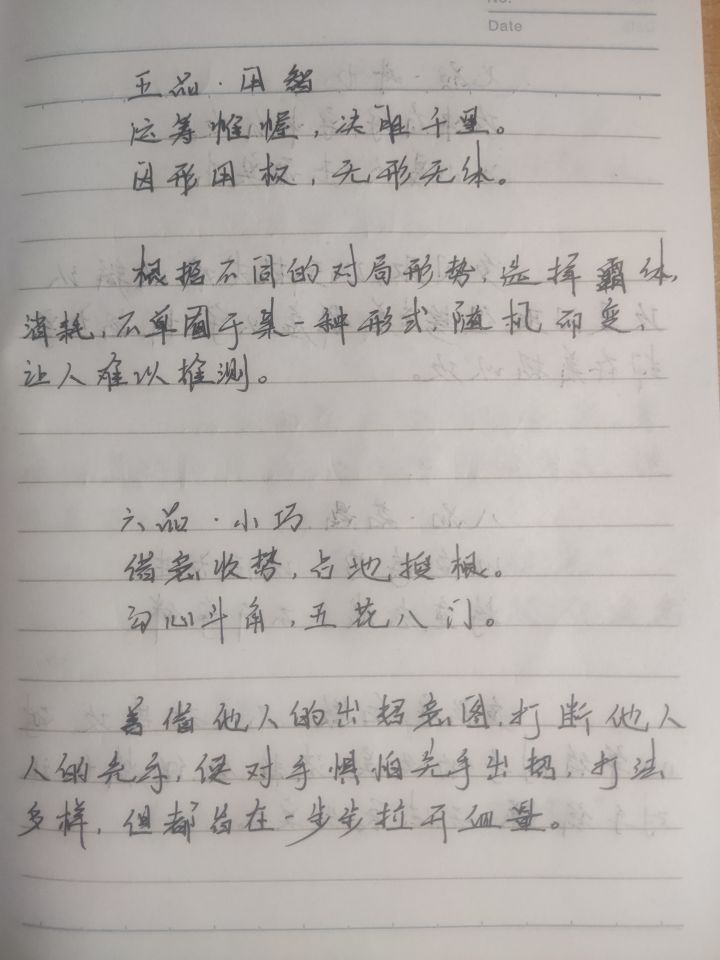 No.
Date
五品·用智
运筹帷幄，决胜千里。
因形用权，无形无体。
根据不同的对局形势，选择霸体，
消耗，不单囿于某一种形式，随机而变，
让人难以推测。
六品·小巧
借意收势，占地换根。
勾心斗角，五花八门。
善借他人的出招意图，打断他人
人的先手，使对手惧怕先手出招，打法
多样，但都旨在一步步拉开血量。